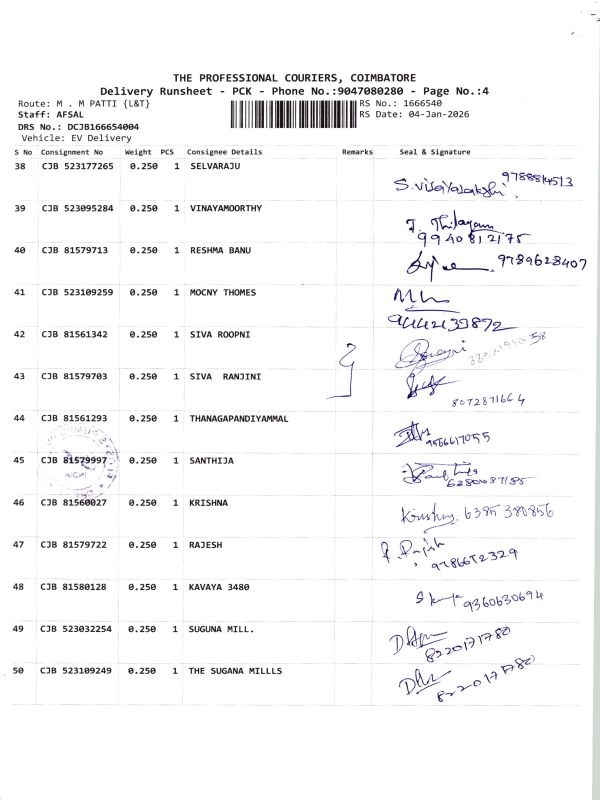 THE PROFESSIONAL COURIERS, COIMBATORE
Delivery Runsheet - PCK - Phone No.:9047080280 - Page No.:4
Route: M . M PATTI {L&T} RS No.: 1666540
Staff: AFSAL RS Date: 04-Jan-2026
DRS No.: DCJB166654004
Vehicle: EV Delivery
S No Consignment No Weight PCS Consignee Details Remarks Seal & Signature
38 CJB 523177265 0.250 1 SELVARAJU
S. vijayalakshi
39 CJB 523095284 0.250 1 VINAYAMOORTHY
J. Thilagam
9940812175
40 CJB 81579713 0.250 1 RESHMA BANU
9789628407
41 CJB 523109259 0.250 1 MOCNY THOMES
9442139872
42 CJB 81561342 0.250 1 SIVA ROOPNI
43 CJB 81579703 0.250 1 SIVA RANJINI
8072871664
44 CJB 81561293 0.250 1 THANAGAPANDIYAMMAL
9566617055
45 CJB 81579997 0.250 1 SANTHIJA
46 CJB 81560027 0.250 1 KRISHNA
Krishna. 6385 380856
47 CJB 81579722 0.250 1 RAJESH
R. Rajesh
9786652329
48 CJB 81580128 0.250 1 KAVAYA 3480
9360630694
49 CJB 523032254 0.250 1 SUGUNA MILL.
8220171780
50 CJB 523109249 0.250 1 THE SUGANA MILLLS
8220171780